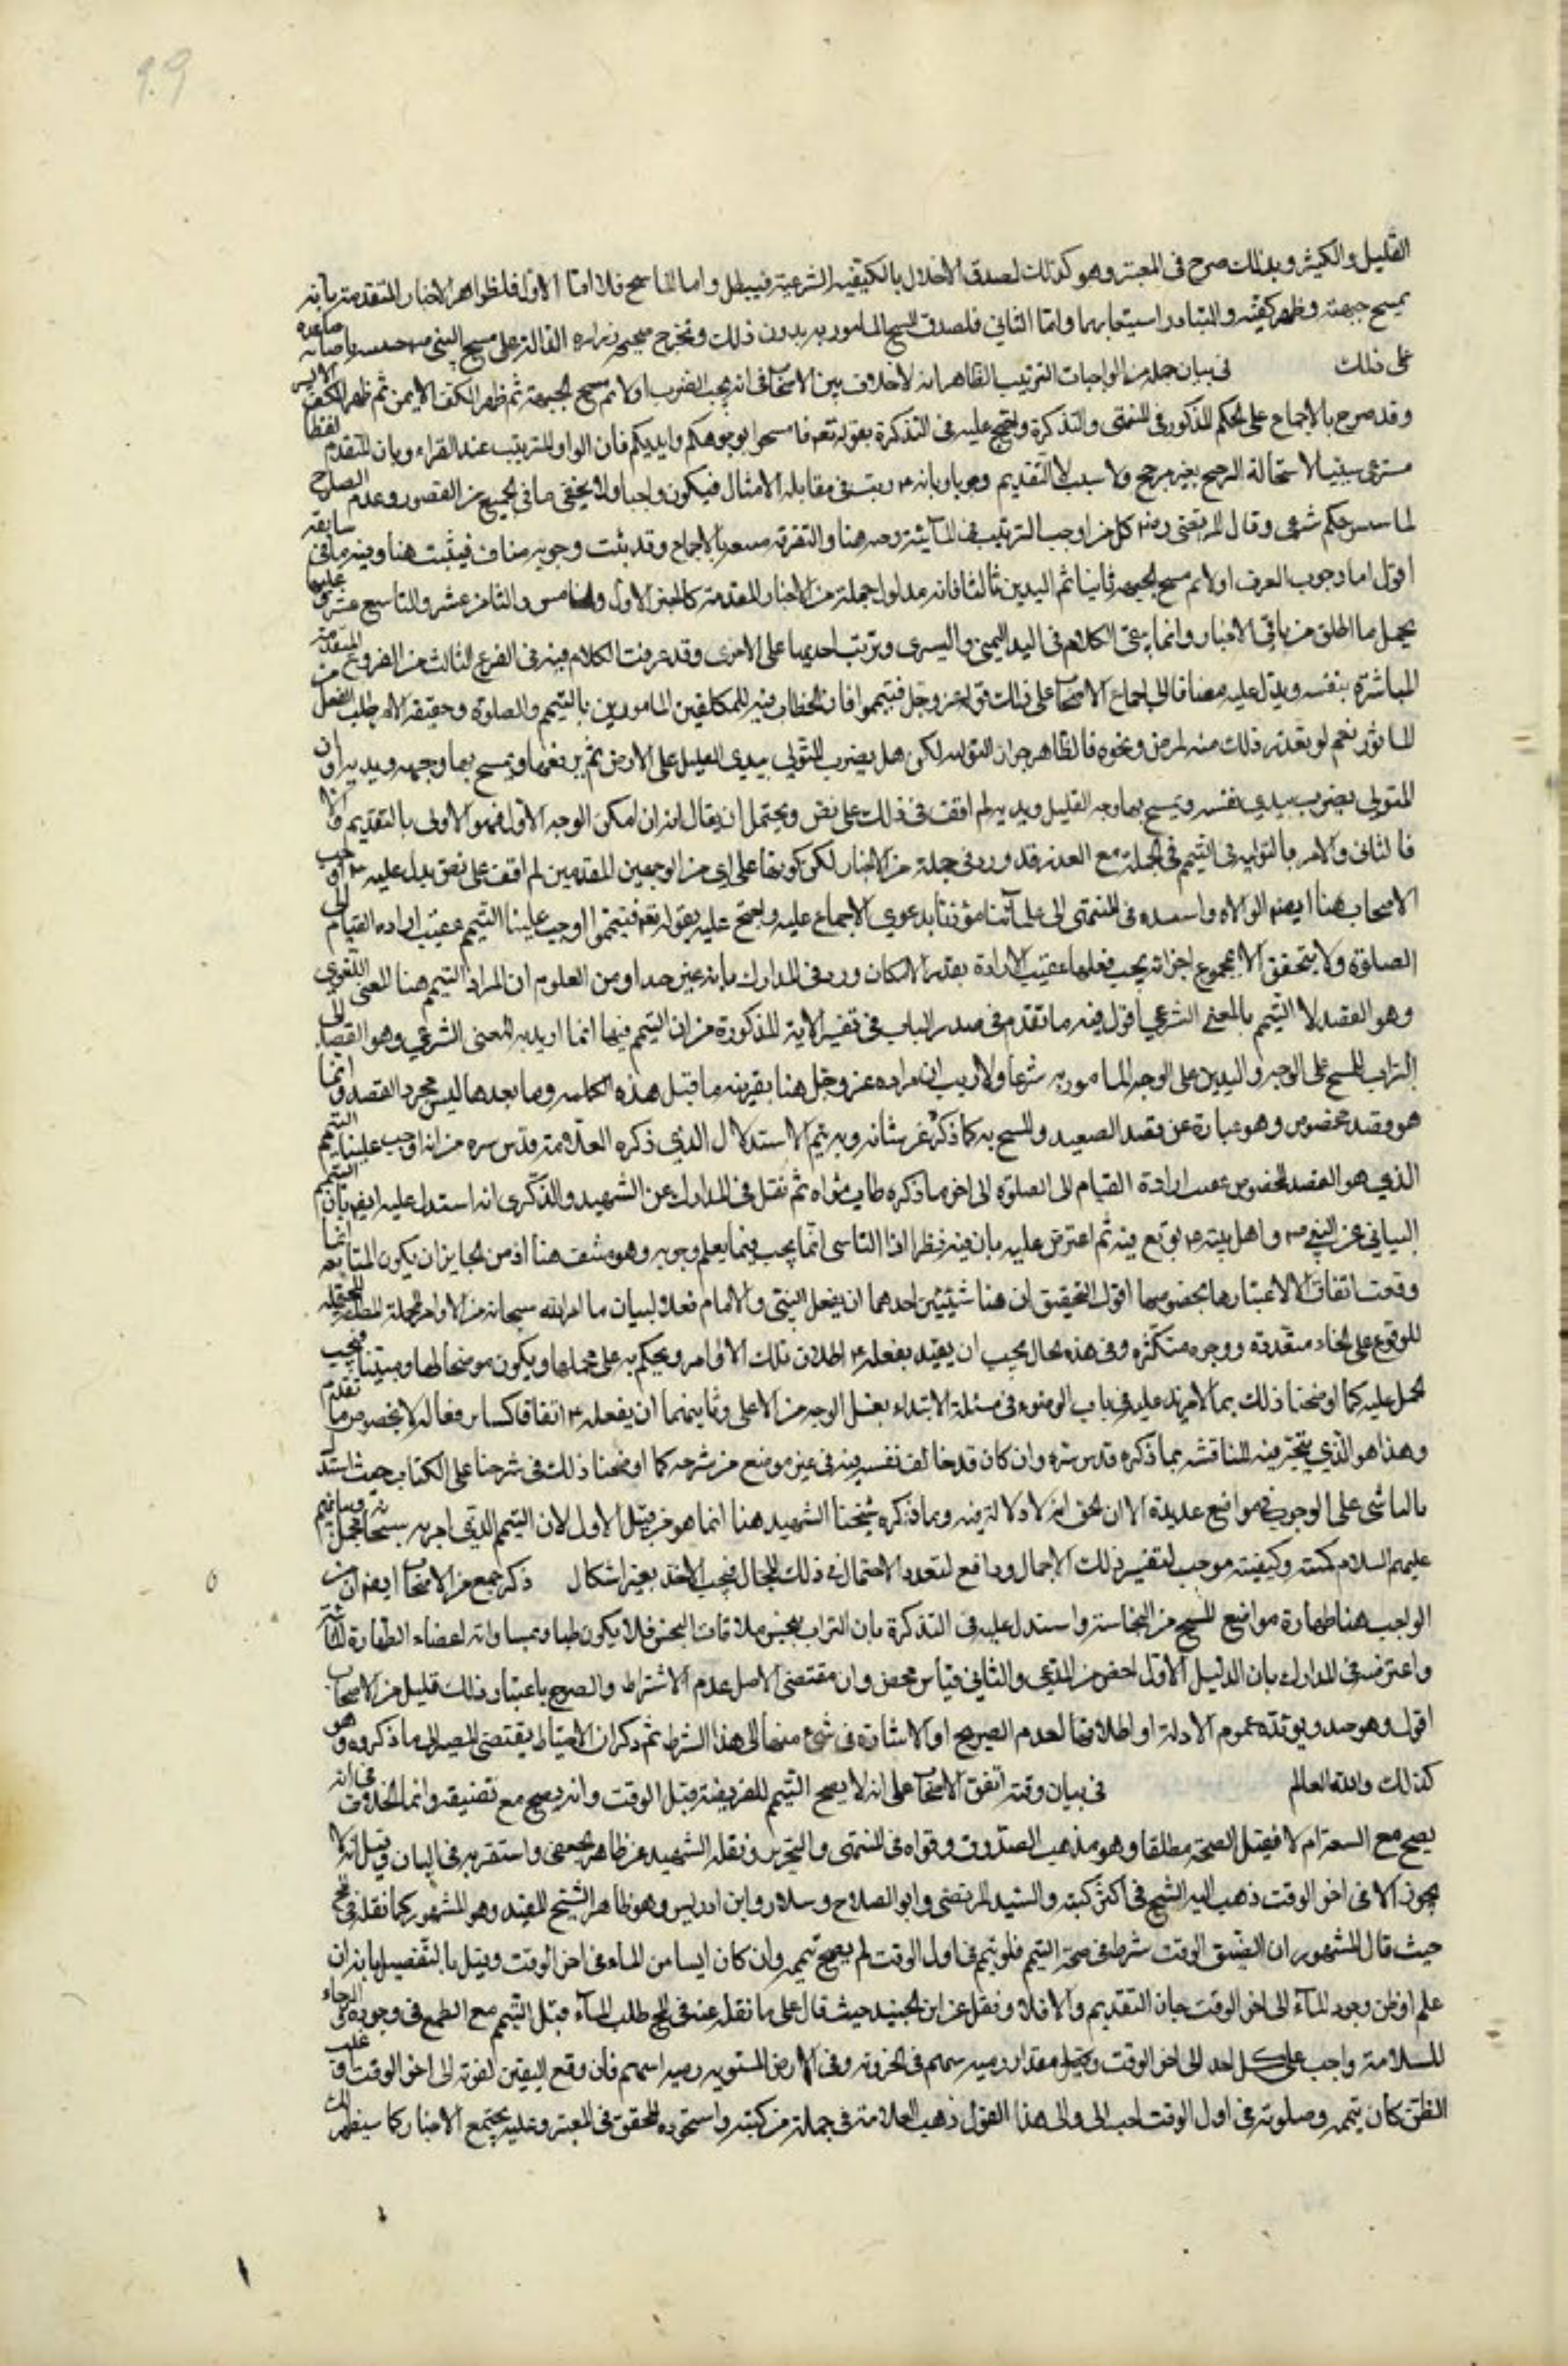 القليل والكثير وبذلك صرح فى المعتبر وهو كذلك لصدق الاخلال بالكيفية الشرعية فيبطل واما الماسح فلا اما الاول فلظواهر الاخبار المتقدمة بانه
يمسح جبهته وظهر كفيه والمتبادر استيعابهما واما الثاني فلصدق المسح المامور به بدون ذلك ويخرج صحيح زراره الدالة على مسح النبى جبينه باصابعه
على ذلك فى بيان جملة من الواجبات الترتيب الظاهر انه لا خلاف بين الاصحاب فى انه يجب الضرب اولا ثم مسح الجبهة ثم ظهر الكف الايمن ثم ظهر الكف الايسر
وقد صرح بالاجماع على الحكم المذكور فى المنتهى والتذكرة واحتج عليه فى التذكرة بقوله تعم فامسحوا بوجوهكم وايديكم فان الواو للترتيب عند الفراء وبان التقديم لفظا
يستدعى سببا لاستحالة الترجيح بغير مرجح ولا سبب الا التقديم وجوبا وبانه ع رتب فى مقابلة الامتثال فيكون واجبا ولا يخفى ما فى الجميع من القصور وعدم الصلوح
لتاسيس حكم شرعى وقال المرتضى رضه كل من اوجب الترتيب فى المائية اوجبه هنا والتفرقة منفية بالاجماع وقد ثبت وجوبه هناك فيثبت هنا وفيه ما فى سابقه
اقول اما وجوب الضرب اولا ثم مسح الجبهه ثانيا ثم اليدين ثالثا فانه مدلول جملة من الاخبار المتقدمة كالخبر الاول والخامس والثامن عشر والتاسع عشر وعليها
يحمل ما اطلق من باقى الاخبار وانما يبقى الكلام فى اليد اليمنى واليسرى وترتب احديهما على الاخرى وقد عرفت الكلام فيه فى الفرع الثالث من الفروع المتقدمة
المباشرة بنفسه ويدل عليه مضافا الى اجماع الاصحاب على ذلك قوله عز وجل فتيمموا فان الخطاب فيه للمكلفين المامورين بالتيمم والصلوة وحقيقة الامر طلب الفعل من
المامور نعم لو تعذر ذلك منه لمرض ونحوه فالظاهر جواز التولية لكن هل يضرب المتولي بيدى العليل على الارض ثم يرفعها ويمسح بها وجهه ويديه او ان
المتولى يضرب بيدي نفسه ويمسح بها وجه العليل ويديه لم اقف فى ذلك على نص ويحتمل ان يقال انه ان امكن الوجه الاول فهو الاولى بالتقديم والا
فالثانى والامر بالتولية فى التيمم فى الجملة مع العذر قد ورد فى جملة من الاخبار لكن كونها على اي من الوجهين المتقدمين لم اقف على نص يدل عليه اوجب
الاصحاب هنا ايضا الموالاه واسنده فى المنتهى الى علمائنا مؤذنا بدعوى الاجماع عليه واحتج عليه بقوله تعم فتيمموا اوجب علينا التيمم عقيب اراده القيام الى
الصلوة ولا يتحقق الا بمجموع اجزائه فيجب فعلها عقيب الارادة بقدر الامكان ورده فى المدارك بانه غير جيد اذ من المعلوم ان المراد بالتيمم هنا المعنى اللغوى
وهو القصد لا التيمم بالمعنى الشرعي اقول فيه ما تقدم فى صدر الباب فى تفسير الاية المذكورة من ان التيمم فيها انما اريد به المعنى الشرعي وهو القصد الى
التراب للمسح على الوجه واليدين على الوجه المامور به شرعا ولا ريب ان مراده عز وجل هنا بقرينة ما قبل هذه الكلمه وما بعدها ليس مجرد القصد وانما
هو قصد مخصوص وهو عبارة عن قصد الصعيد والمسح به كما ذكره عز شانه وبه يتم الاستدلال الذي ذكره العلامة قدس سره من انه اوجب علينا التيمم
الذي هو القصد المخصوص عقيب ارادة القيام الى الصلوة الى اخر ما ذكره طاب ثراه ثم نقل فى المدارك عن الشهيد والذكرى انه استدل عليه ايضا بان التيمم
البياني عن النبي ص واهل بيته ع توبع فيه ثم اعترض عليه بان فيه نظرا اذا التاسى انما يجب فيما يعلم وجوبه وهو منتف هنا اذ من الجايز ان يكون المتابعه انما
وقعت اتفاقا لا لاعتبارها بخصوصها اقول التحقيق ان هنا شيئين احدهما ان يفعل النبى والامام فعلا لبيان ما امر الله سبحانه من الاوامر المجملة المحتمله
للوقوع على انحاء متعددة ووجوه متكثره وفى هذه الحال يجب ان يقيد بفعله ع اطلاق تلك الاوامر ويحكم به على مجملها ويكون موضحا لها ومبينا فيجب
الحمل عليه كما اوضحنا ذلك بما لا مزيد عليه فى باب الوضوء فى مسئلة الابتداء بغسل الوجه من الاعلى وثانيهما ان يفعله ع اتفاقا كسائر افعاله لا بخصوص ما تقدم
وهذا هو الذي يتجه فيه المناقشه بما ذكره قدس سره وان كان قد خالف نفسه فيه فى غير موضع من شرحه كما اوضحنا ذلك فى شرحنا على الكتاب حيث استدل
بالتاسى على الوجوب فى مواضع عديدة الا ان الحق انه لا دلالة فيه وما ذكره شيخنا الشهيد هنا انما هو من قبيل الاول لان التيمم الذي امر به سبحانه مجمل وبيانهم
عليهم السلام كميته وكيفيته موجب لتفسير ذلك الاجمال ودافع لتعدد الاحتمال فى ذلك المجال فيجب الاخذ بغير اشكال ذكر جمع من الاصحاب ايضا ان من
الواجب هنا طهارة مواضع المسح من النجاسة واستدل عليه فى التذكرة بان التراب ينجس بملاقات النجس فلا يكون طيبا وبمساواته اعضاء الطهارة المائية
واعترضه فى المدارك بان الدليل الاول اخص من المدعى والثانى قياس محض وان مقتضى الاصل عدم الاشتراط والمصرح باعتبار ذلك قليل من الاصحاب
اقول وهو جيد ويؤيده عموم الادلة او اطلاقها لعدم التصريح او الاشارة فى شئ منها الى هذا الشرط ثم ذكر ان الاحتياط يقتضى المصير الى ما ذكروه وهو
كذلك والله العالم فى بيان وقته اتفق الاصحاب على انه لا يصح التيمم للفريضة قبل الوقت وانه يصح مع تضيقه وانما الخلاف فى انه
يصح مع السعة ام لا فقيل الصحة مطلقا وهو مذهب الصدوق وقواه فى المنتهى والتحرير ونقله الشهيد عن ظاهر الجعفى واستقربه فى البيان وقيل انه لا
يجوز الا فى اخر الوقت ذهب اليه الشيخ فى اكثر كتبه والسيد المرتضى وابو الصلاح وسلار وابن ادريس وهو ظاهر الشيخ المفيد وهو المشهور كما نقله فى لف
حيث قال المشهور ان تضيق الوقت شرط فى صحة التيمم فلو تيمم فى اول الوقت لم يصح تيممه وان كان ايسا من الماء فى اخر الوقت وقيل بالتفصيل بانه ان
علم او ظن وجود الماء الى اخر الوقت جاز التقديم والا فلا ونقل عن ابن الجنيد حيث قال على ما نقله عنه فى لف طلب الماء قبل التيمم مع الطمع فى وجوده والرجاء
للسلامة واجب على كل احد الى اخر الوقت وبعد مقدار رميه سهم فى الحزونه وفى الارض المستويه رميه اسهم فان وقع اليقين لفوته الى اخر الوقت او غلب
الظن كان تيممه وصلوته فى اول الوقت احب الى والى هذا القول ذهب العلامة فى جملة من كتبه واستجوده المحقق فى المعتبر وعليه يجتمع الاخبار كما سيظهر لك